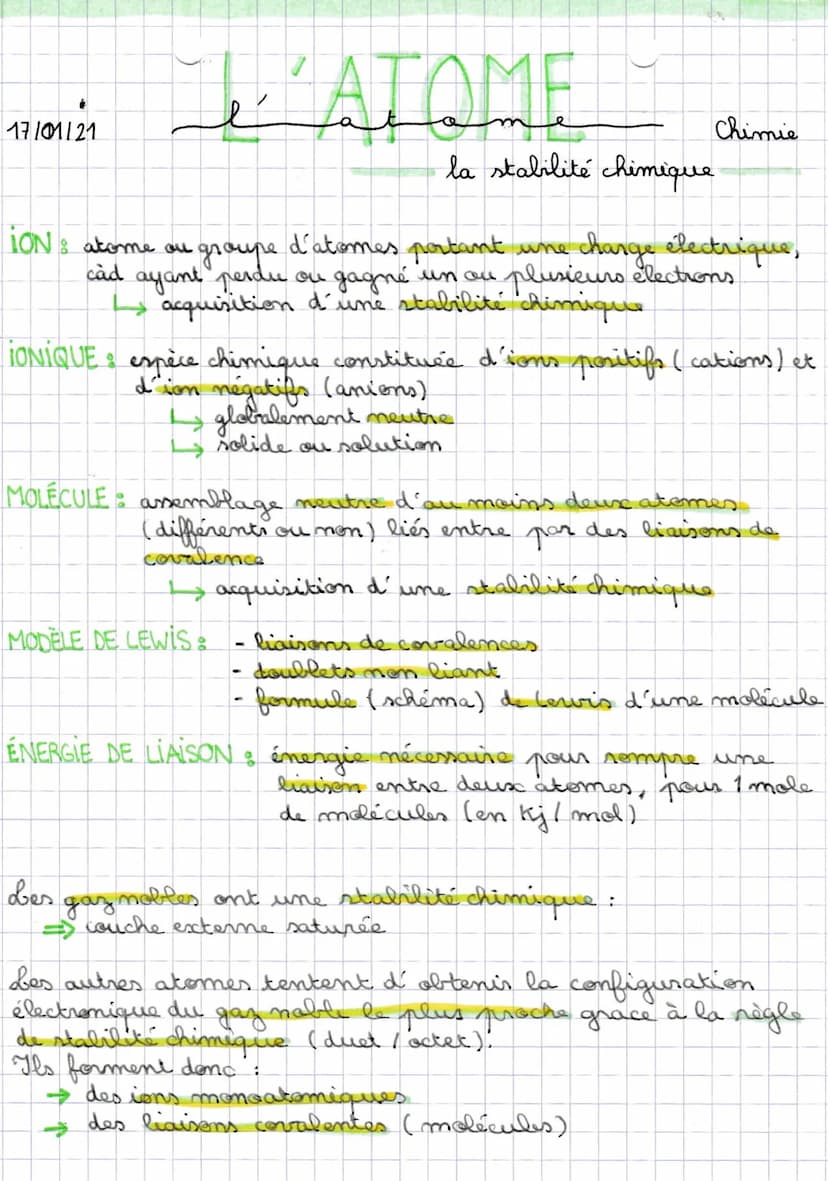 L'ATOME
l'atome
17/01/21
Chimie
la stabilité chimique
ION : atome ou groupe d'atomes portant une charge électrique,
càd ayant perdu ou gagné un ou plusieurs électrons
↳ acquisition d'une stabilité chimique
IONIQUE : espèce chimique constituée d'ions positifs (cations) et
d'ion négatifs (anions)
↳ globalement neutre
↳ solide ou solution
MOLÉCULE : assemblage neutre d'au moins deux atomes
(différents ou non) liés entre par des liaisons de
covalence
↳ acquisition d'une stabilité chimique
MODÈLE DE LEWIS : - liaisons de covalences
- doublets non liant
- formule (schéma) de Lewis d'une molécule
ÉNERGIE DE LIAISON : énergie nécessaire pour rompre une
liaison entre deux atomes, pour 1 mole
de molécules (en Kj / mol)
Les gaz nobles ont une stabilité chimique :
⇒ couche externe saturée
Les autres atomes tentent d'obtenir la configuration
électronique du gaz noble le plus proche grace à la règle
de stabilité chimique (duet / octet).
Ils forment donc :
→ des ions monoatomiques
→ des liaisons covalentes (molécules)